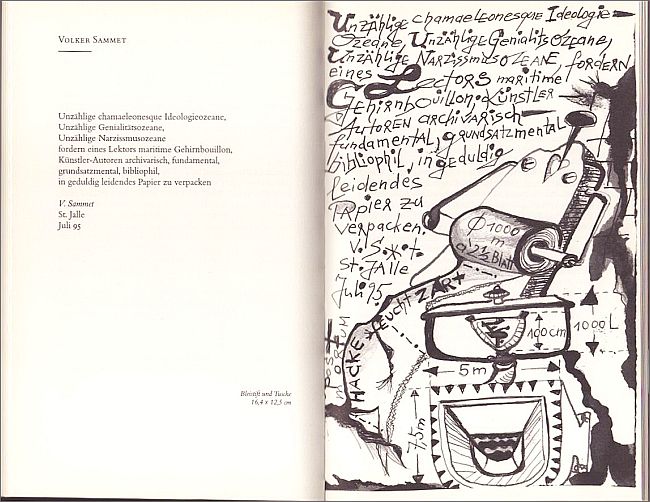 VOLKER SAMMET
Unzählige chamaeleonesque Ideologieozeane,
Unzählige Genialitätsozeane,
Unzählige Narzissmusozeane
fordern eines Lektors maritime Gehirnbouillon,
Künstler-Autoren archivarisch, fundamental,
grundsatzmental, bibliophil,
in geduldig leidendes Papier zu verpacken
V. Sammet
St. Jalle
Juli 95
Bleistift und Tusche
16,4 x 12,5 cm
Unzählige chamaeleonesque Ideologie-
Ozeane, Unzählige Genialitsozeane,
Unzählige NARZISSMUSOZEANE, fordern
eines Lectors maritime
Gehirnbouillon, Künstler-
Autoren archivarisch
fundamental, grundsatzmental
bibliophil, in geduldig
leidendes
Papier zu
verpacken.
V. S.
St. JAlle
Juli 95
Ø 1000
m
a 2½ Blatt
POST
MORTUM
HACKE feucht ZART
100cm
1000L
5m
7,5m